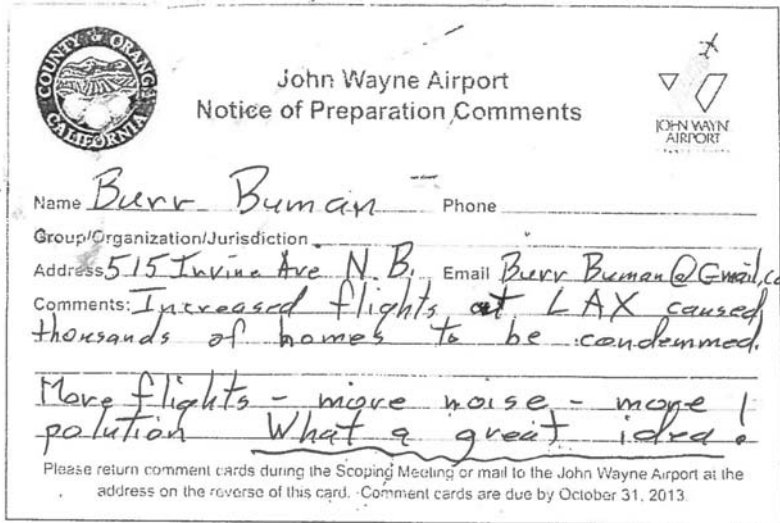 COUNTY OF ORANGE
CALIFORNIA
John Wayne Airport
Notice of Preparation Comments
JOHN WAYNE
AIRPORT
Name Burr Buman Phone
Group/Organization/Jurisdiction
Address 515 Irvine Ave N.B. Email Burr Buman@Gmail.co
Comments: Increased flights at LAX caused
thousands of homes to be condemmed.
More flights - more noise - more
polution What a great idea!
Please return comment cards during the Scoping Meeting or mail to the John Wayne Airport at the
address on the reverse of this card. Comment cards are due by October 31, 2013.